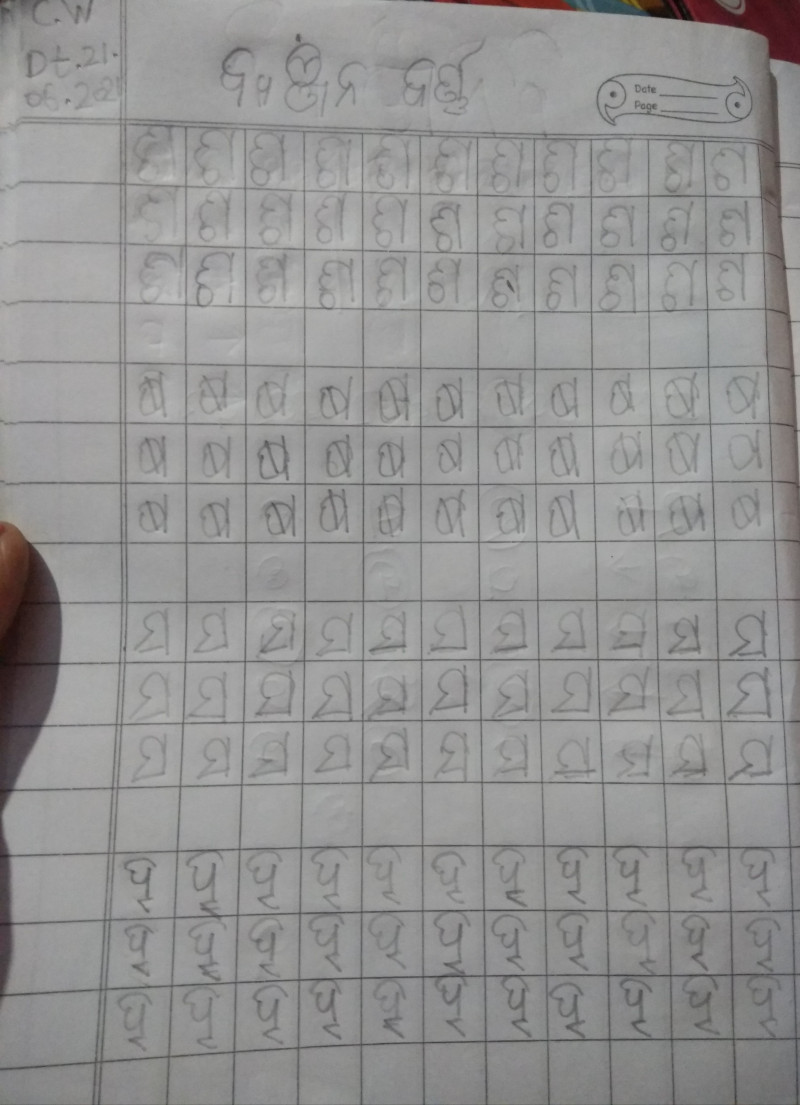 C.W
Dt.21.
06.2021
ବ୍ୟଞ୍ଜନ ବର୍ଣ୍ଣ
Date
Page
ଶ ଶ ଶ ଶ ଶ ଶ ଶ ଶ ଶ ଶ ଶ
ଶ ଶ ଶ ଶ ଶ ଶ ଶ ଶ ଶ ଶ ଶ
ଶ ଶ ଶ ଶ ଶ ଶ ଶ ଶ ଶ ଶ ଶ
ଷ ଷ ଷ ଷ ଷ ଷ ଷ ଷ ଷ ଷ ଷ
ଷ ଷ ଷ ଷ ଷ ଷ ଷ ଷ ଷ ଷ ଷ
ଷ ଷ ଷ ଷ ଷ ଷ ଷ ଷ ଷ ଷ ଷ
ସ ସ ସ ସ ସ ସ ସ ସ ସ ସ ସ
ସ ସ ସ ସ ସ ସ ସ ସ ସ ସ ସ
ସ ସ ସ ସ ସ ସ ସ ସ ସ ସ ସ
ହ ହ ହ ହ ହ ହ ହ ହ ହ ହ ହ
ହ ହ ହ ହ ହ ହ ହ ହ ହ ହ ହ
ହ ହ ହ ହ ହ ହ ହ ହ ହ ହ ହ